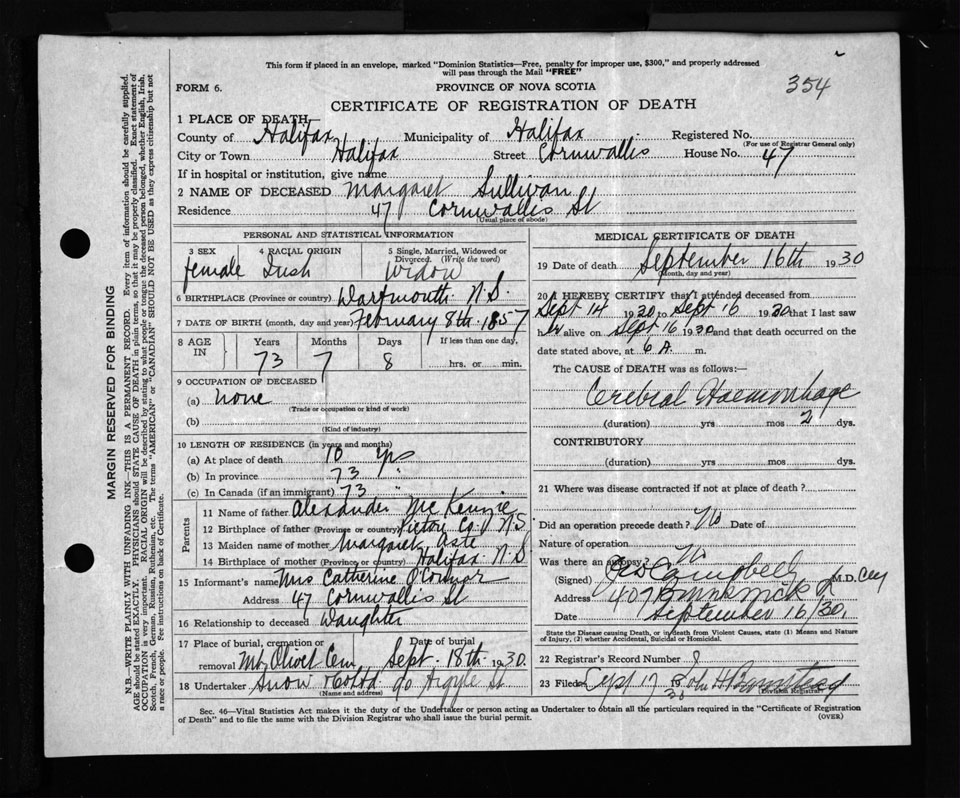 This form if placed in an envelope, marked "Dominion Statistics—Free, penalty for improper use, $300," and properly addressed
will pass through the Mail "FREE"
354
FORM 6.
PROVINCE OF NOVA SCOTIA
CERTIFICATE OF REGISTRATION OF DEATH
1 PLACE OF DEATH
County of Halifax Municipality of Halifax Registered No.
(For use of Registrar General only)
City or Town Halifax Street Cornwallis House No. 47
If in hospital or institution, give name
2 NAME OF DECEASED Margaret Sullivan
Residence 47 Cornwallis St
(Usual place of abode)
PERSONAL AND STATISTICAL INFORMATION
3 SEX 4 RACIAL ORIGIN 5 Single, Married, Widowed or
Divorced. (Write the word)
female Irish widow
6 BIRTHPLACE (Province or country) Dartmouth N.S.
7 DATE OF BIRTH (month, day and year) February 8th 1857
8 AGE IN Years Months Days If less than one day,
73 7 8 hrs. or min.
9 OCCUPATION OF DECEASED
(a) none
(Trade or occupation or kind of work)
(b)
(Kind of industry)
10 LENGTH OF RESIDENCE (in years and months)
(a) At place of death 10 yrs
(b) In province 73 "
(c) In Canada (if an immigrant) 73 "
Parents
11 Name of father Alexander McKenzie
12 Birthplace of father (Province or country) Victori Co. N.S
13 Maiden name of mother Margaret Aste
14 Birthplace of mother (Province or country) Halifax N.S
15 Informant's name Mrs Catherine O'Connor
Address 47 Cornwallis St
16 Relationship to deceased Daughter
17 Place of burial, cremation or Date of burial
removal Mt Olivet Cem Sept. 18th 1930.
18 Undertaker Snow & Co Ltd 90 Argyle St
(Name and address)
MEDICAL CERTIFICATE OF DEATH
19 Date of death September 16th 1930
(Month, day and year)
20 I HEREBY CERTIFY that I attended deceased from
Sept 14 1930 to Sept 16 1930 that I last saw
her alive on Sept 16 1930 and that death occurred on
date stated above, at 6 A. m.
The CAUSE of DEATH was as follows:—
Cerebral Haemorrhage
(duration) yrs mos 2 dys.
CONTRIBUTORY
(duration) yrs. mos. dys.
21 Where was disease contracted if not at place of death?
Did an operation precede death? No Date of
Nature of operation
Was there an autopsy? No
(Signed) Campbell M.D.
Address 407 Brunswick St
Date September 16/30,
State the Disease causing Death, or in death from Violent Causes, state (1) Means and Nature
of Injury, (2) whether Accidental, Suicidal or Homicidal.
22 Registrar's Record Number
23 Filed Sept 17 30 John H Barnstead
Division Registrar
Sec. 46—Vital Statistics Act makes it the duty of the Undertaker or person acting as Undertaker to obtain all the particulars required in the "Certificate of Registration
of Death" and to file the same with the Division Registrar who shall issue the burial permit.
(OVER)
MARGIN RESERVED FOR BINDING
N.B.—WRITE PLAINLY WITH UNFADING INK—THIS IS A PERMANENT RECORD. Every item of information should be carefully supplied.
AGE should be stated EXACTLY. PHYSICIANS should STATE CAUSE OF DEATH in plain terms, so that it may be properly classified. Exact statement of
OCCUPATION is very important. RACIAL ORIGIN will be described by stating to what people or tongue the deceased person belonged, whether English, Irish,
Scotch, French, German, Russian, Ruthenian, etc. The terms "AMERICAN" or "CANADIAN" SHOULD NOT BE USED as they express citizenship but not
a race or people. See instructions on back of Certificate.